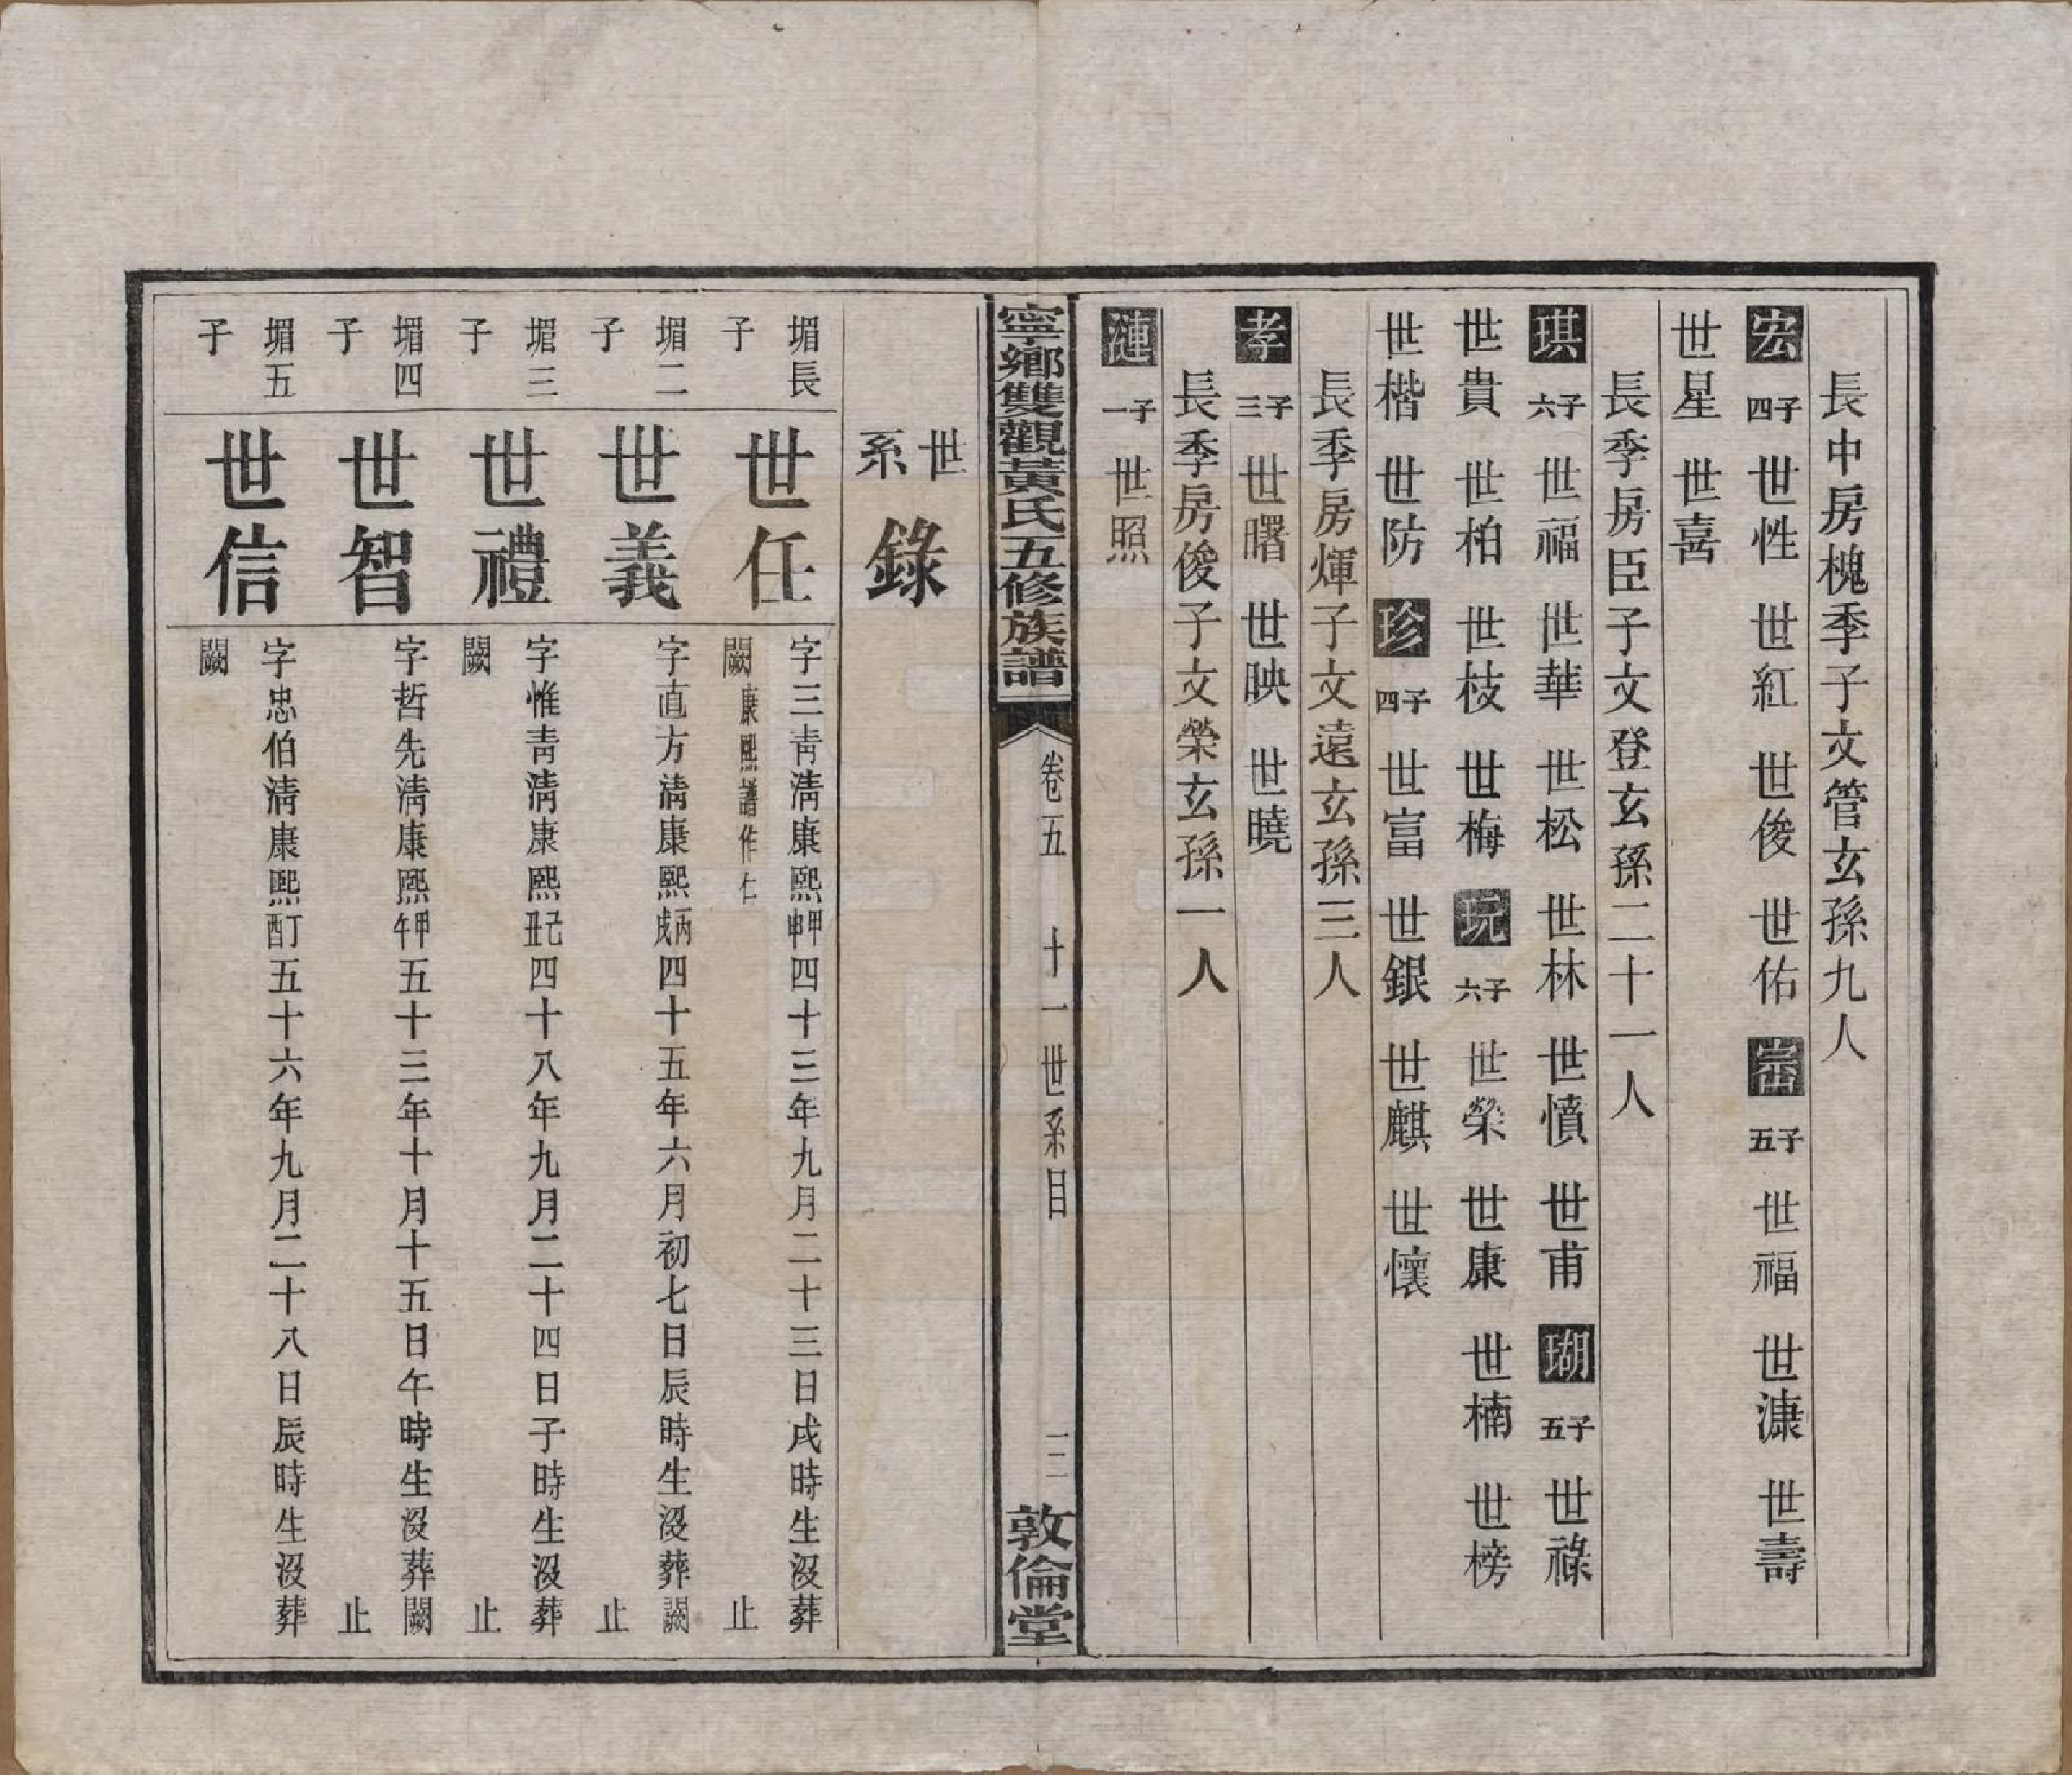 長中房槐季子文管玄孫九人
宏 四子 世性 世紅 世俊 世佑 崙 五子 世福 世漮 世壽
世星 世喜
長季房臣子文登玄孫二十一人
琪 六子 世福 世華 世松 世林 世憤 世甫 瑚 五子 世祿
世貴 世柏 世枝 世梅 玩 六子 世榮 世康 世楠 世榜
世楷 世防 珍 四子 世富 世銀 世麒 世懷
長季房煇子文遠玄孫三人
孝 三子 世曙 世映 世曉
長季房俊子文榮玄孫一人
漣 一子 世照
寧鄉雙觀黃氏五修族譜 卷五 十一世系目 二 敦倫堂
世系錄
堳長子 世任 字三靑淸康熙甲申四十三年九月二十三日戌時生沒葬
闕 康熙譜作仁 止
堳二子 世義 字直方淸康熙丙戌四十五年六月初七日辰時生沒葬闕
止
堳三子 世禮 字惟靑淸康熙己丑四十八年九月二十四日子時生沒葬
闕 止
堳四子 世智 字哲先淸康熙甲午五十三年十月十五日午時生沒葬闕
止
堳五子 世信 字忠伯淸康熙丁酉五十六年九月二十八日辰時生沒葬
闕